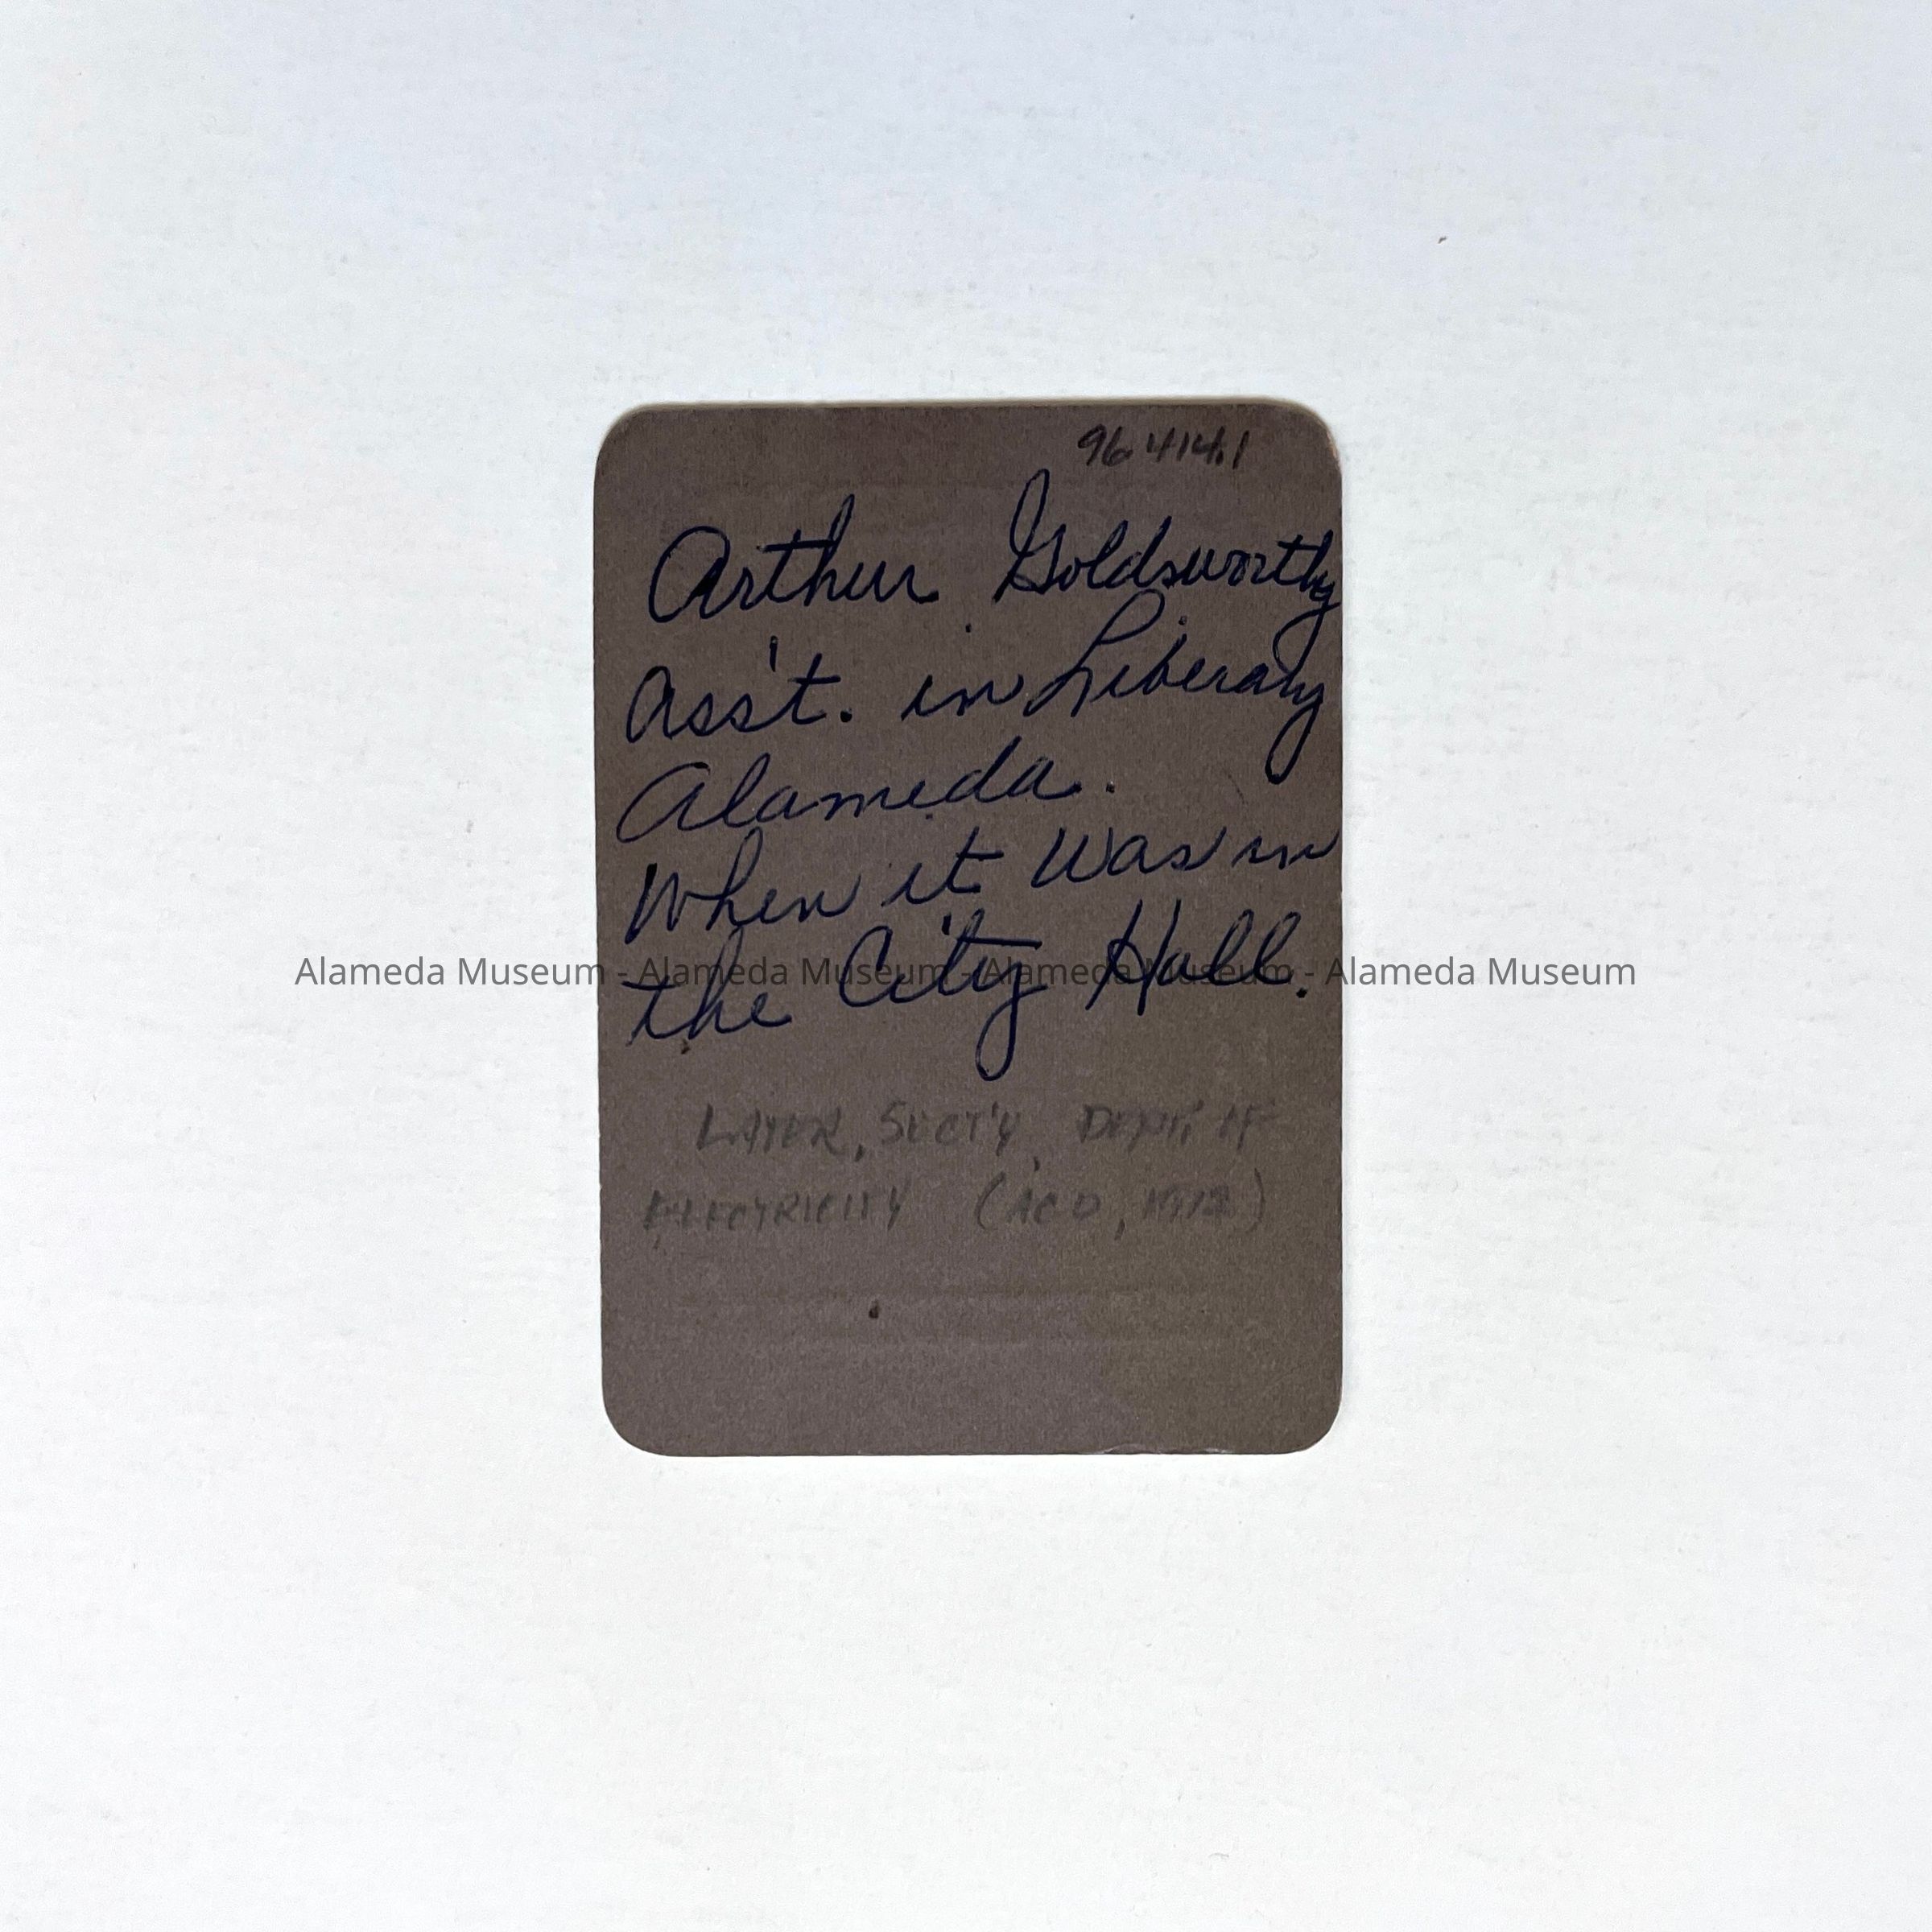 96.414.1
Arthur Goldsworthy
Ass't. in Liberary
Alameda.
When it was in
the City Hall.
Alameda Museum - Alameda Museum - Alameda Museum - Alameda Museum
LATER, SECT'Y DEPT. OF
ELECTRICITY (ACD, 1912)